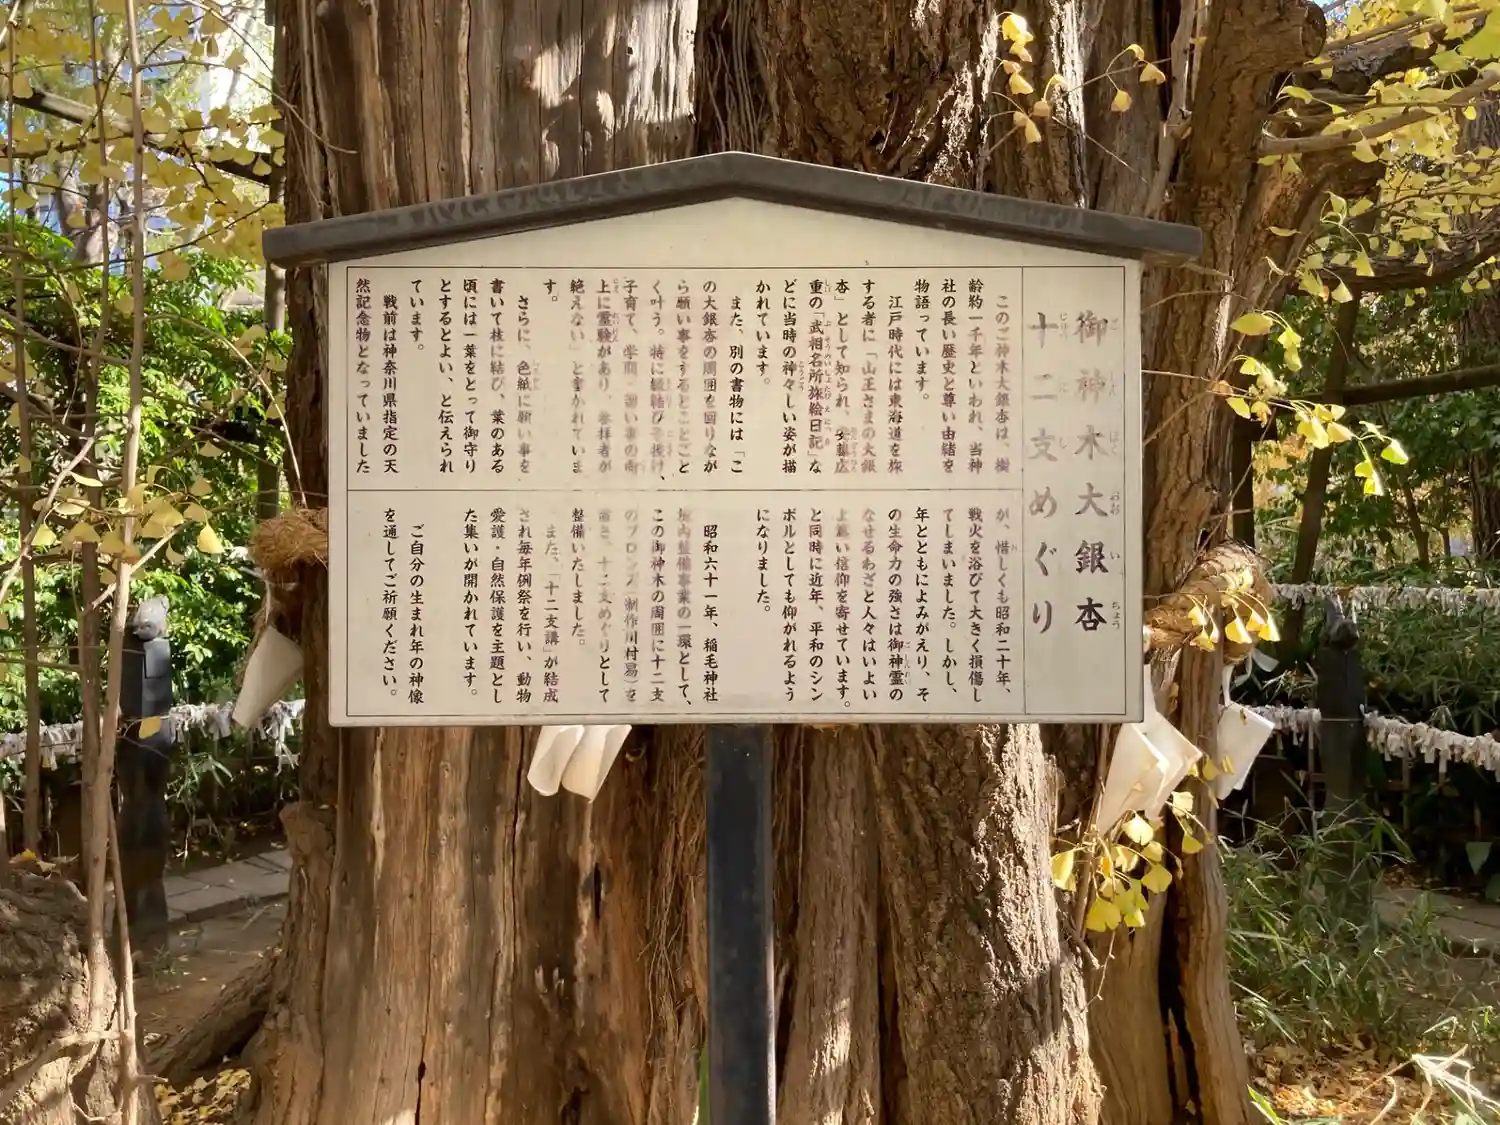 御神木大銀杏
十二支めぐり
このご神木大銀杏は、樹
齢約一千年といわれ、当神
社の長い歴史と尊い由緒を
物語っています。
江戸時代には東海道を旅
する者に「山王さまの大銀
杏」として知られ、安藤広
重の「武相名所旅絵日記」な
どに当時の神々しい姿が描
かれています。
また、別の書物には「こ
の大銀杏の周囲を回りなが
ら願い事をするとことごと
く叶う。特に縁結び子授け、
子育て、学問・習い事の向
上に霊験があり、参拝者が
絶えない」と書かれていま
す。
さらに、色紙に願い事を
書いて枝に結び、葉のある
頃には一葉をとって御守り
とするとよい、と伝えられ
ています。
戦前は神奈川県指定の天
然記念物となっていました
が、惜しくも昭和二十年、
戦火を浴びて大きく損傷し
てしまいました。しかし、
年とともによみがえり、そ
の生命力の強さは御神霊の
なせるわざと人々はいよい
よ篤い信仰を寄せています。
と同時に近年、平和のシン
ボルとしても仰がれるよう
になりました。
昭和六十一年、稲毛神社
境内整備事業の一環として、
この御神木の周囲に十二支
のブロンズ（制作川村易）を
置き、十二支めぐりとして
整備いたしました。
また、「十二支講」が結成
され毎年例祭を行い、動物
愛護・自然保護を主題とし
た集いが開かれています。
ご自分の生まれ年の神像
を通してご祈願ください。